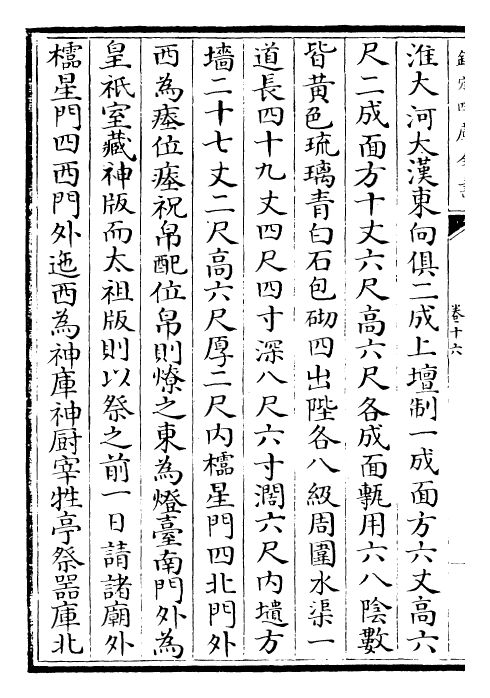 欽定四庫全書
卷十六
淮大河大漢東向俱二成上壇制一成面方六丈高六
尺二成面方十丈六尺高六尺各成面甎用六八陰數
皆黄色琉璃青白石包砌四出陛各八級周圍水渠一
道長四十九丈四尺四寸深八尺六寸濶六尺内壝方
墻二十七丈二尺高六尺厚二尺内櫺星門四北門外
西為瘞位瘞祝帛配位帛則燎之東為燈臺南門外為
皇祇室藏神版而太祖版則以祭之前一日請諸廟外
櫺星門四西門外迤西為神庫神厨宰牲亭祭器庫北